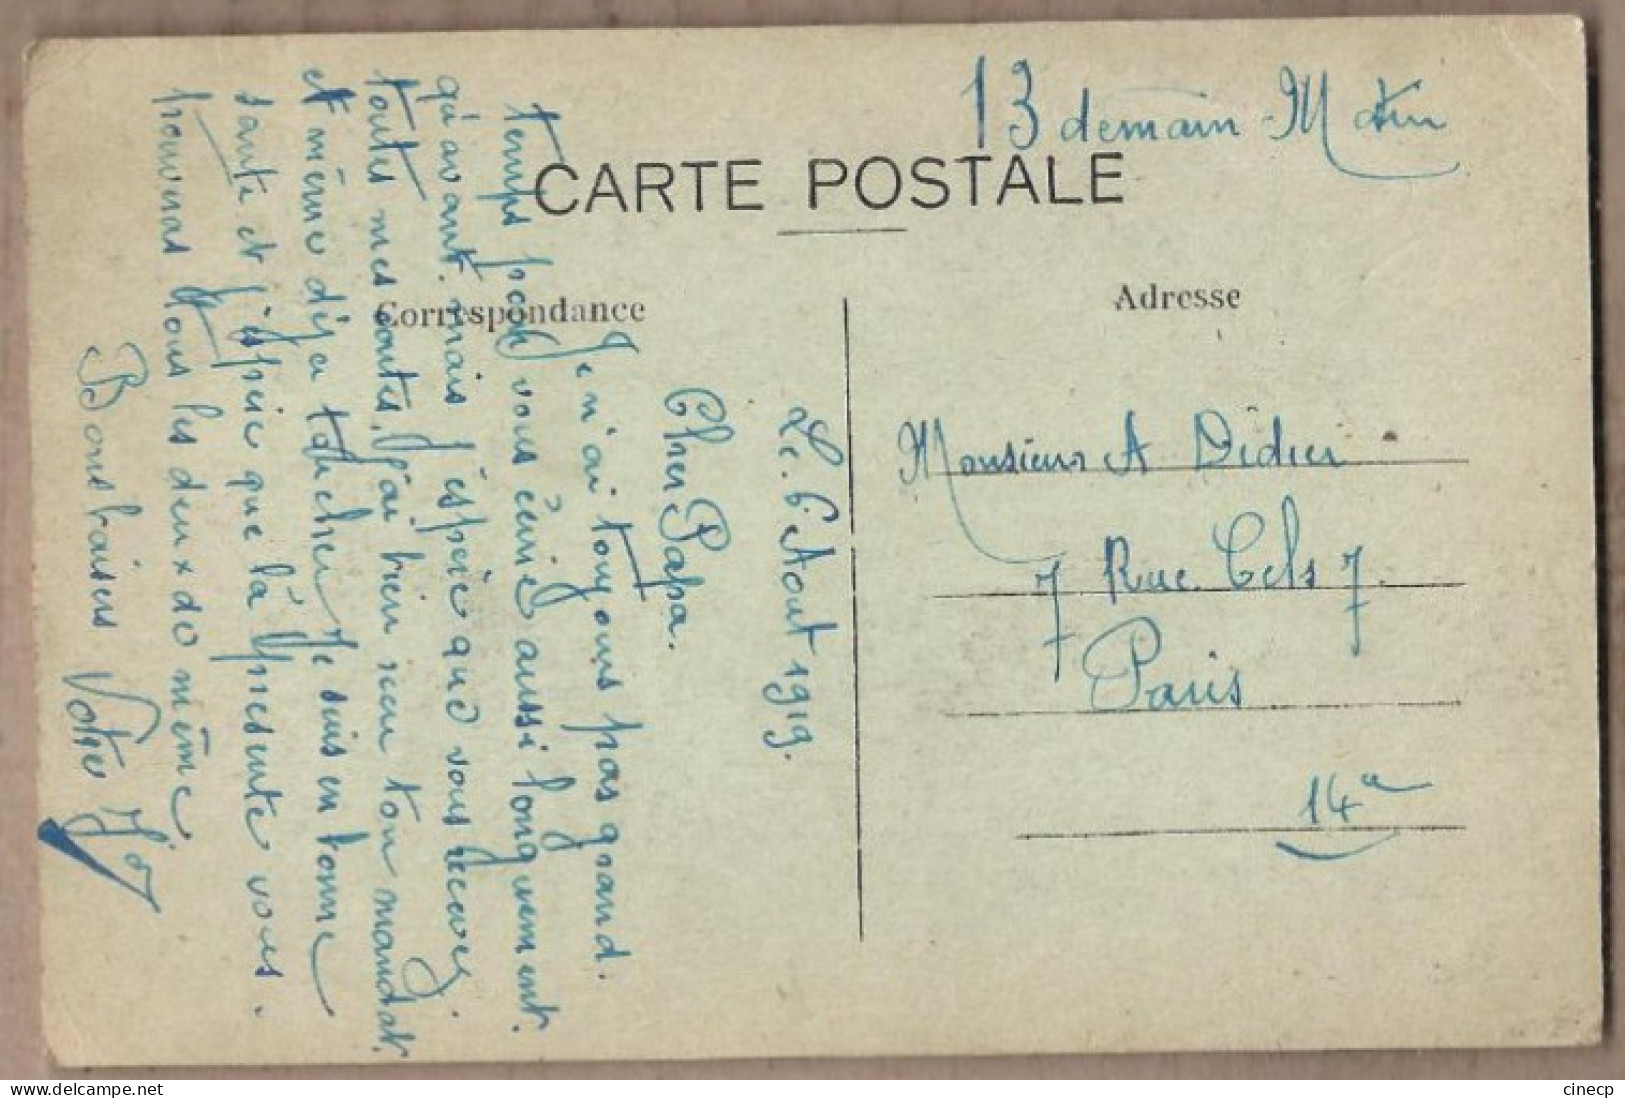 13 demain Matin
CARTE POSTALE
Correspondance
Adresse
Le 6 Aout 1919.
Cher Papa.
Je n'ai toujours pas grand.
temps pour vous écrire aussi longuement.
qu'avant. mais j'espère que vous recevez
toutes mes cartes. J'ai bien recu ton mandat.
et même déja toucher Je suis en bonne
sante et j'espère que la présente vous.
trouveras tous les deux do même
Bons baisers Votre
Monsieur A Didier
7 Rue Cels 7.
Paris
14e
cinecp